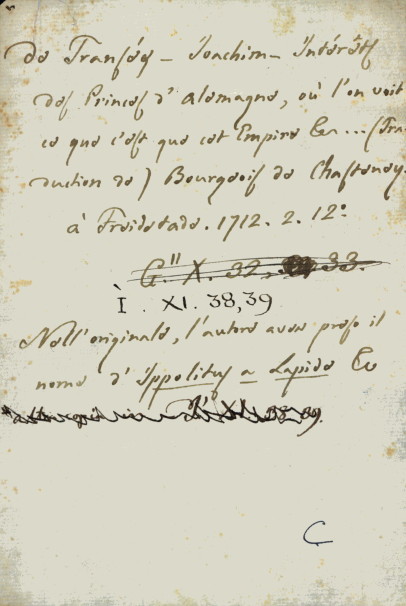 de Transéés - Joachim - Intérêts
des Princes d'Alemagne, où l'on voit
ce que c'est que cet Empire &c... (Tra-
duction de) Bourgeois de Chastenay.
à Freistade. 1712. 2. 12°
G." X. 32, 33.
I. XI. 38,39
Nell'originale, l'autore avea preso il
nome d'Ippolitus a Lapide &c
38 39.
C